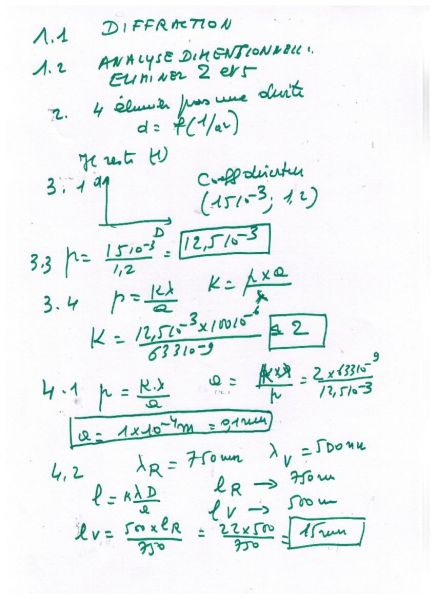 1.1 DIFFRACTION
1.2 ANALYSE DIMENTIONNELLE :
ELIMINER 2 et 5
2. 4 éliminer pas une droite
d = f(1/a²)
Il reste (1)
3.1 d Coeff directeur
D (15 10⁻³ ; 1,2)
3.3 p = 15 10⁻³ / 1,2 = 12,5 10⁻³
3.4 p = Kλ / a K = p x a / λ
K = 12,5 10⁻³ x 100 10⁻⁶ / 633 10⁻⁹ = 2
4.1 p = K.λ / a a = K x λ / p = 2 x 633 10⁻⁹ / 12,5 10⁻³
a = 1 x 10⁻⁴ m = 0,1 mm
4.2 λR = 750 nm λV = 500 nm
l = KλD / a lR → 750 nm
lV → 500 nm
lV = 500 x lR / 750 = 22 x 500 / 750 = 15 mm